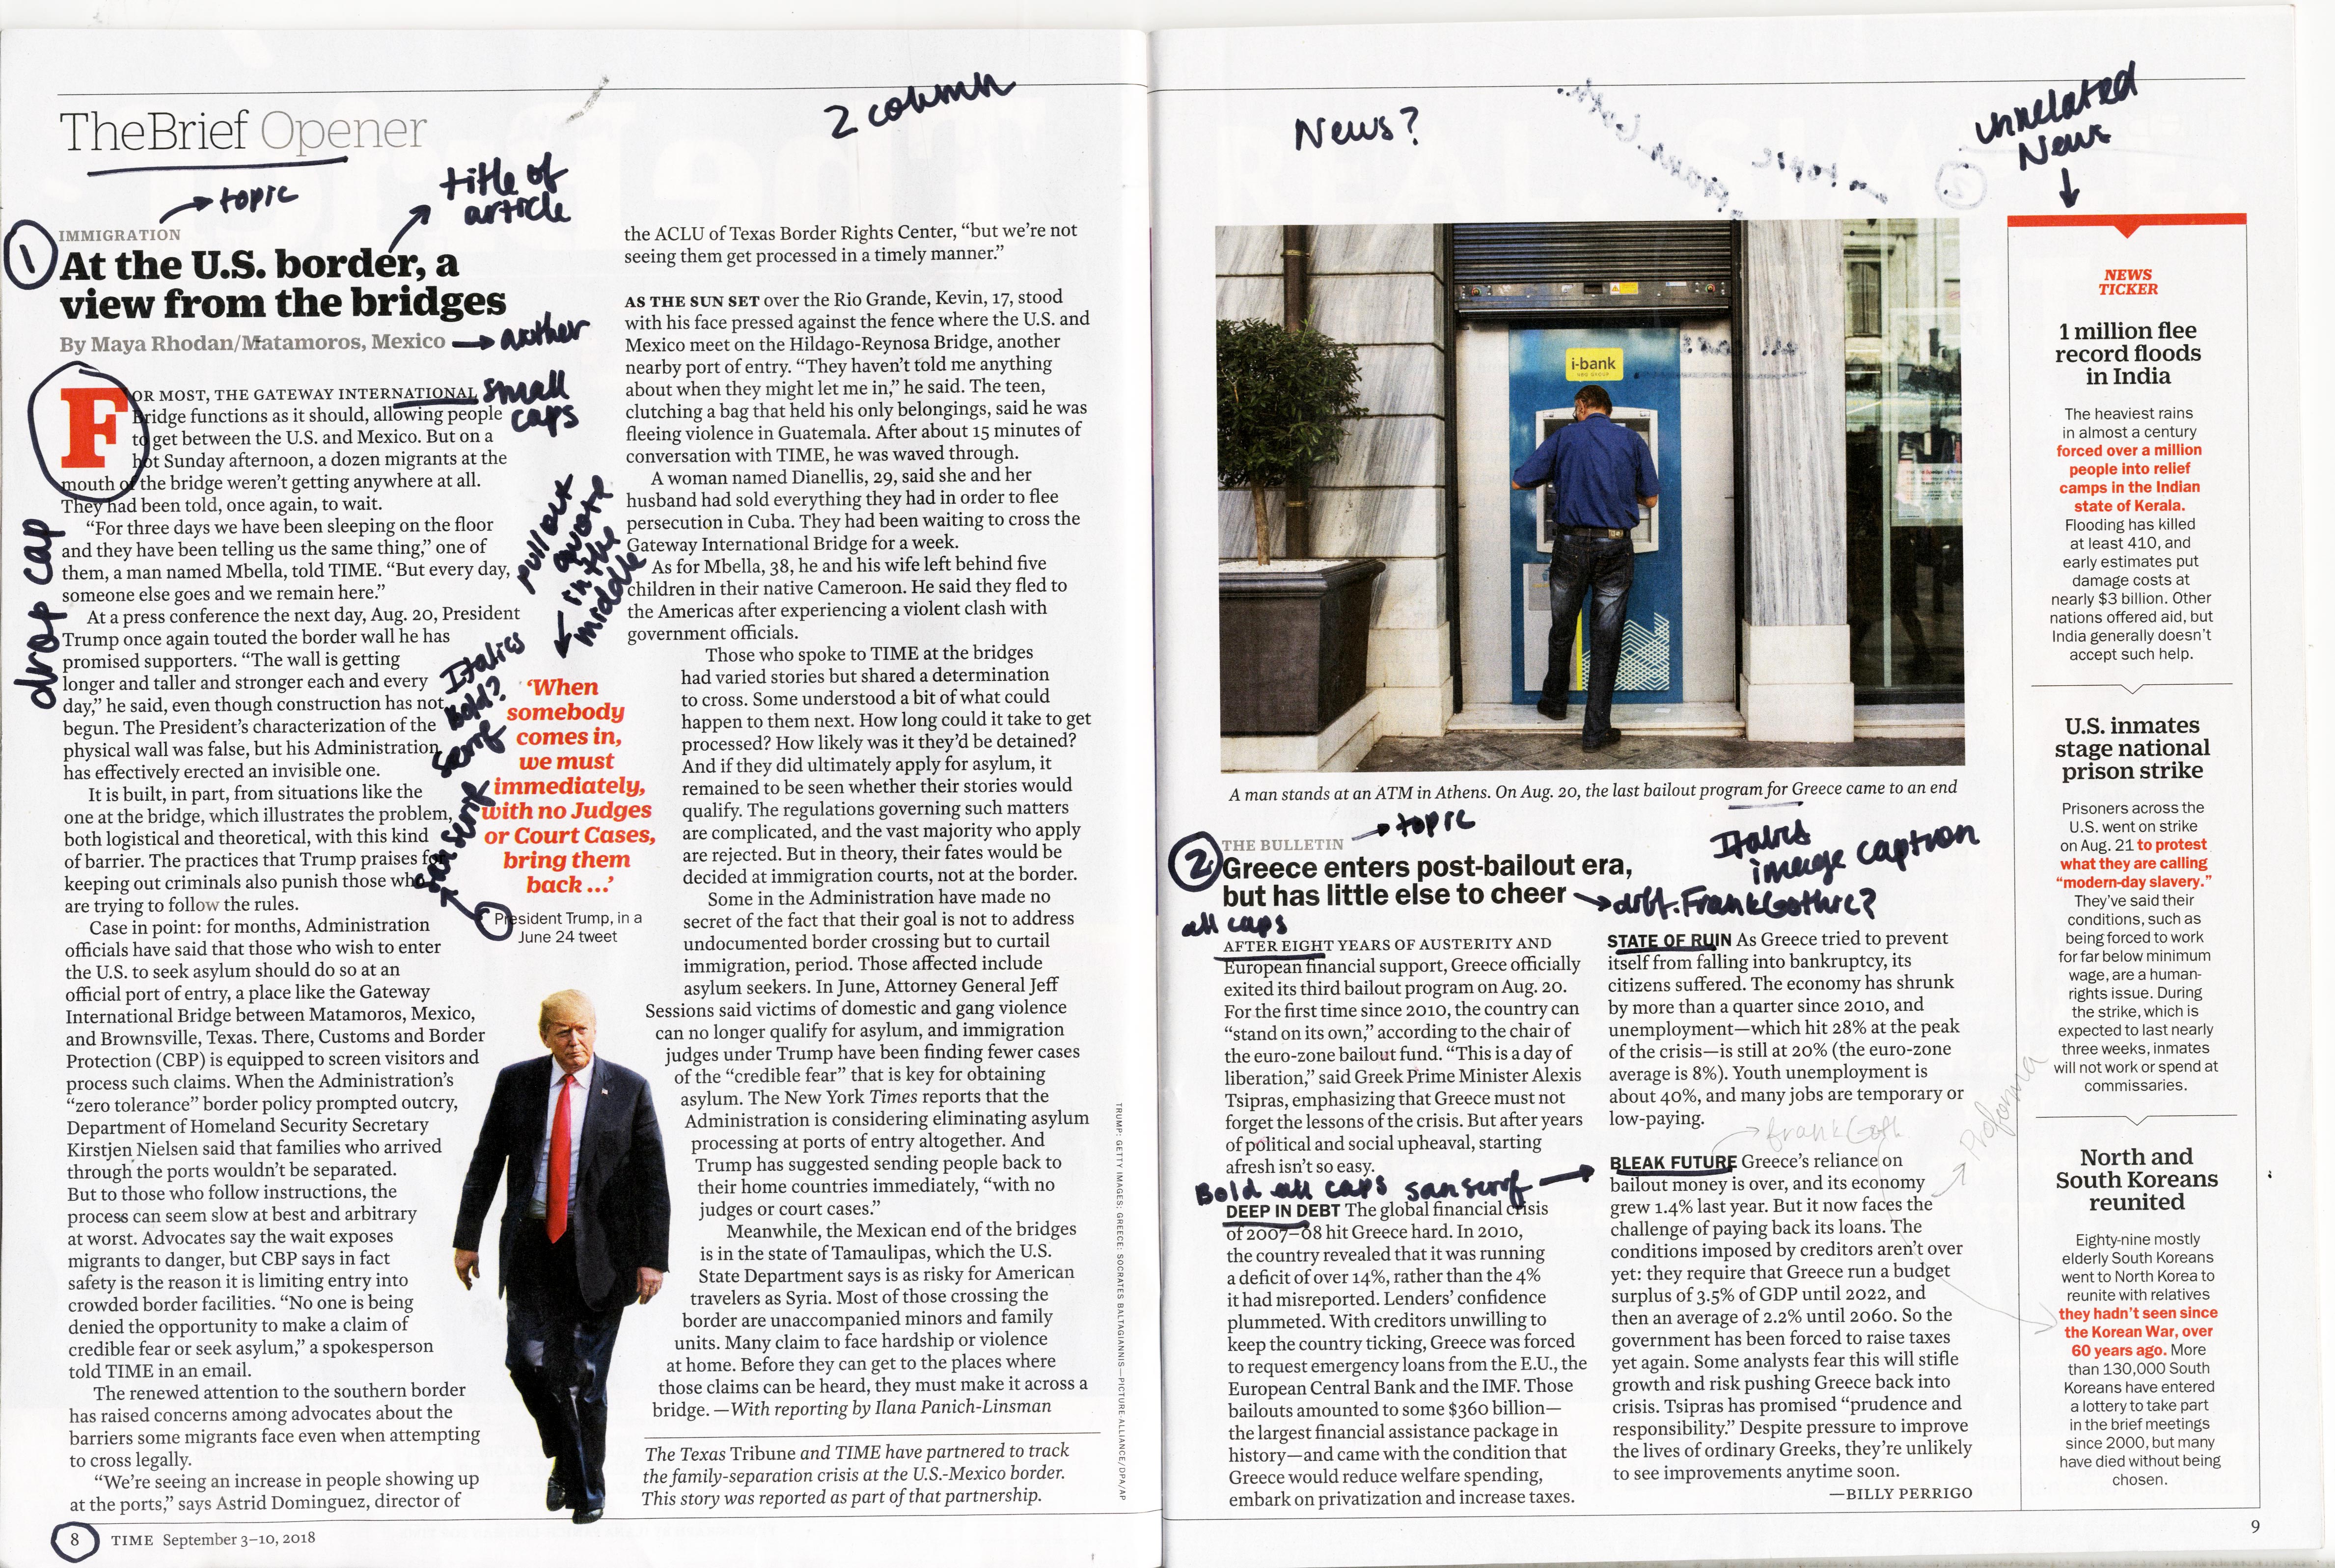 TheBrief Opener
2 column
→ topic
title of
article
1
IMMIGRATION
At the U.S. border, a
view from the bridges
By Maya Rhodan/Matamoros, Mexico
→ author
small
caps
drop cap
FOR MOST, THE GATEWAY INTERNATIONAL
Bridge functions as it should, allowing people
to get between the U.S. and Mexico. But on a
hot Sunday afternoon, a dozen migrants at the
mouth of the bridge weren't getting anywhere at all.
They had been told, once again, to wait.
“For three days we have been sleeping on the floor
and they have been telling us the same thing,” one of
them, a man named Mbella, told TIME. “But every day,
someone else goes and we remain here.”
At a press conference the next day, Aug. 20, President
Trump once again touted the border wall he has
promised supporters. “The wall is getting
longer and taller and stronger each and every
day,” he said, even though construction has not
begun. The President's characterization of the
physical wall was false, but his Administration
has effectively erected an invisible one.
It is built, in part, from situations like the
one at the bridge, which illustrates the problem,
both logistical and theoretical, with this kind
of barrier. The practices that Trump praises for
keeping out criminals also punish those who
are trying to follow the rules.
Case in point: for months, Administration
officials have said that those who wish to enter
the U.S. to seek asylum should do so at an
official port of entry, a place like the Gateway
International Bridge between Matamoros, Mexico,
and Brownsville, Texas. There, Customs and Border
Protection (CBP) is equipped to screen visitors and
process such claims. When the Administration's
“zero tolerance” border policy prompted outcry,
Department of Homeland Security Secretary
Kirstjen Nielsen said that families who arrived
through the ports wouldn't be separated.
But to those who follow instructions, the
process can seem slow at best and arbitrary
at worst. Advocates say the wait exposes
migrants to danger, but CBP says in fact
safety is the reason it is limiting entry into
crowded border facilities. “No one is being
denied the opportunity to make a claim of
credible fear or seek asylum,” a spokesperson
told TIME in an email.
The renewed attention to the southern border
has raised concerns among advocates about the
barriers some migrants face even when attempting
to cross legally.
“We're seeing an increase in people showing up
at the ports,” says Astrid Dominguez, director of
pull out
quote
in the
middle
Italics
Bold?
serif
San serif
‘When
somebody
comes in,
we must
immediately,
with no Judges
or Court Cases,
bring them
back ...’
President Trump, in a
June 24 tweet
the ACLU of Texas Border Rights Center, “but we're not
seeing them get processed in a timely manner.”
AS THE SUN SET over the Rio Grande, Kevin, 17, stood
with his face pressed against the fence where the U.S. and
Mexico meet on the Hildago-Reynosa Bridge, another
nearby port of entry. “They haven't told me anything
about when they might let me in,” he said. The teen,
clutching a bag that held his only belongings, said he was
fleeing violence in Guatemala. After about 15 minutes of
conversation with TIME, he was waved through.
A woman named Dianellis, 29, said she and her
husband had sold everything they had in order to flee
persecution in Cuba. They had been waiting to cross the
Gateway International Bridge for a week.
As for Mbella, 38, he and his wife left behind five
children in their native Cameroon. He said they fled to
the Americas after experiencing a violent clash with
government officials.
Those who spoke to TIME at the bridges
had varied stories but shared a determination
to cross. Some understood a bit of what could
happen to them next. How long could it take to get
processed? How likely was it they'd be detained?
And if they did ultimately apply for asylum, it
remained to be seen whether their stories would
qualify. The regulations governing such matters
are complicated, and the vast majority who apply
are rejected. But in theory, their fates would be
decided at immigration courts, not at the border.
Some in the Administration have made no
secret of the fact that their goal is not to address
undocumented border crossing but to curtail
immigration, period. Those affected include
asylum seekers. In June, Attorney General Jeff
Sessions said victims of domestic and gang violence
can no longer qualify for asylum, and immigration
judges under Trump have been finding fewer cases
of the “credible fear” that is key for obtaining
asylum. The New York Times reports that the
Administration is considering eliminating asylum
processing at ports of entry altogether. And
Trump has suggested sending people back to
their home countries immediately, “with no
judges or court cases.”
Meanwhile, the Mexican end of the bridges
is in the state of Tamaulipas, which the U.S.
State Department says is as risky for American
travelers as Syria. Most of those crossing the
border are unaccompanied minors and family
units. Many claim to face hardship or violence
at home. Before they can get to the places where
those claims can be heard, they must make it across a
bridge. —With reporting by Ilana Panich-Linsman
The Texas Tribune and TIME have partnered to track
the family-separation crisis at the U.S.-Mexico border.
This story was reported as part of that partnership.
TRUMP: GETTY IMAGES; GREECE: SOCRATES BALTAGIANNIS—PICTURE-ALLIANCE/DPA/AP
8 TIME September 3–10, 2018
News?
unrelated
News
i-bank
A man stands at an ATM in Athens. On Aug. 20, the last bailout program for Greece came to an end
→ topic
Italics
image caption
2
THE BULLETIN
Greece enters post-bailout era,
but has little else to cheer
→ drbt. FrankGothic?
all caps
AFTER EIGHT YEARS OF AUSTERITY AND
European financial support, Greece officially
exited its third bailout program on Aug. 20.
For the first time since 2010, the country can
“stand on its own,” according to the chair of
the euro-zone bailout fund. “This is a day of
liberation,” said Greek Prime Minister Alexis
Tsipras, emphasizing that Greece must not
forget the lessons of the crisis. But after years
of political and social upheaval, starting
afresh isn't so easy.
Bold all caps san serif →
DEEP IN DEBT The global financial crisis
of 2007–08 hit Greece hard. In 2010,
the country revealed that it was running
a deficit of over 14%, rather than the 4%
it had misreported. Lenders' confidence
plummeted. With creditors unwilling to
keep the country ticking, Greece was forced
to request emergency loans from the E.U., the
European Central Bank and the IMF. Those
bailouts amounted to some $360 billion—
the largest financial assistance package in
history—and came with the condition that
Greece would reduce welfare spending,
embark on privatization and increase taxes.
STATE OF RUIN As Greece tried to prevent
itself from falling into bankruptcy, its
citizens suffered. The economy has shrunk
by more than a quarter since 2010, and
unemployment—which hit 28% at the peak
of the crisis—is still at 20% (the euro-zone
average is 8%). Youth unemployment is
about 40%, and many jobs are temporary or
low-paying.
frankGoth
Proforma
BLEAK FUTURE Greece's reliance on
bailout money is over, and its economy
grew 1.4% last year. But it now faces the
challenge of paying back its loans. The
conditions imposed by creditors aren't over
yet: they require that Greece run a budget
surplus of 3.5% of GDP until 2022, and
then an average of 2.2% until 2060. So the
government has been forced to raise taxes
yet again. Some analysts fear this will stifle
growth and risk pushing Greece back into
crisis. Tsipras has promised “prudence and
responsibility.” Despite pressure to improve
the lives of ordinary Greeks, they're unlikely
to see improvements anytime soon.
—BILLY PERRIGO
NEWS
TICKER
1 million flee
record floods
in India
The heaviest rains
in almost a century
forced over a million
people into relief
camps in the Indian
state of Kerala.
Flooding has killed
at least 410, and
early estimates put
damage costs at
nearly $3 billion. Other
nations offered aid, but
India generally doesn't
accept such help.
U.S. inmates
stage national
prison strike
Prisoners across the
U.S. went on strike
on Aug. 21 to protest
what they are calling
“modern-day slavery.”
They've said their
conditions, such as
being forced to work
for far below minimum
wage, are a human-
rights issue. During
the strike, which is
expected to last nearly
three weeks, inmates
will not work or spend at
commissaries.
North and
South Koreans
reunited
Eighty-nine mostly
elderly South Koreans
went to North Korea to
reunite with relatives
they hadn't seen since
the Korean War, over
60 years ago. More
than 130,000 South
Koreans have entered
a lottery to take part
in the brief meetings
since 2000, but many
have died without being
chosen.
9